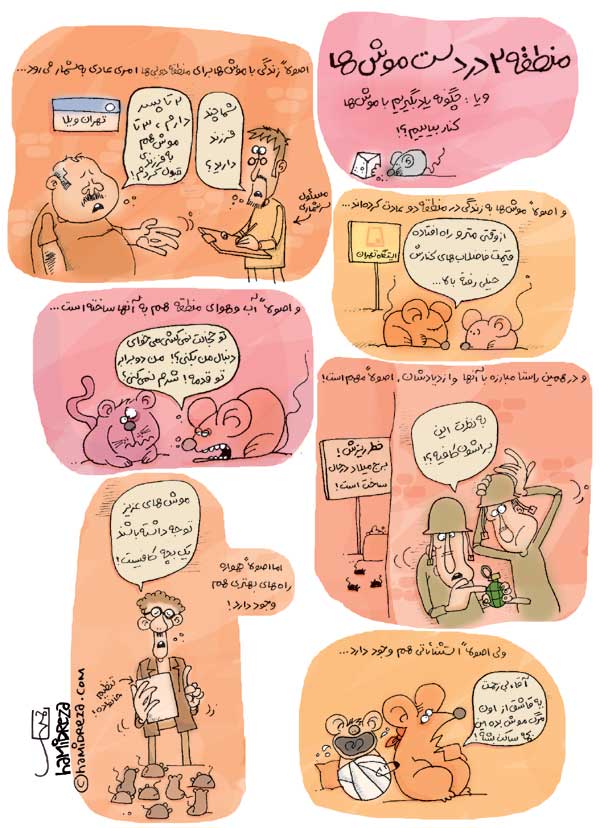 منطقه ۲ در دست موش ها
ویا: چگونه یاد بگیریم با موش‌ها
کنار بیائیم؟!
اصولاً زندگی با موش‌ها برای منطقه دویی‌ها امری عادی به شمار می‌رود...
تهران ویلا
۲ تا پسر
دارم، ۳ تا
موش هم
به فرزندی
قبول کردم!
شما چند
فرزند
دارید؟
مسئول
سرشماری
و اصولاً موش‌ها به زندگی در منطقه دو عادت کرده‌اند...
ایستگاه تهران
از وقتی مترو راه افتاده
قیمت فاضلاب‌های کنارش
خیلی رفته بالا...
و اصولاً آب و هوای منطقه هم به آنها ساخته است...
تو خجالت نمی‌کشی می‌خوای
دنبال من بکنی؟! من دو برابر
تو قدمه! شرم نمی‌کنی؟
و در همین راستا مبارزه با آنها و ازدیادشان، اصولاً مهم است!
خطر ریزش!
برج میلاد در حال
ساخت است!
به نظرت این
براشون کافیه؟!
اما اصولاً همواره
راه‌های بهتری هم
وجود دارد!
موش های عزیز
توجه داشته باشید
یک بچه کافیست!
تنظیم
خانواده!
ولی اصولاً استثنائاتی هم وجود دارد...
آقا، بی‌زحمت
یه قاشق از اون
مرگ موش بده این
بچه ساکت بشه!
hamidreza
©hamidreza.com